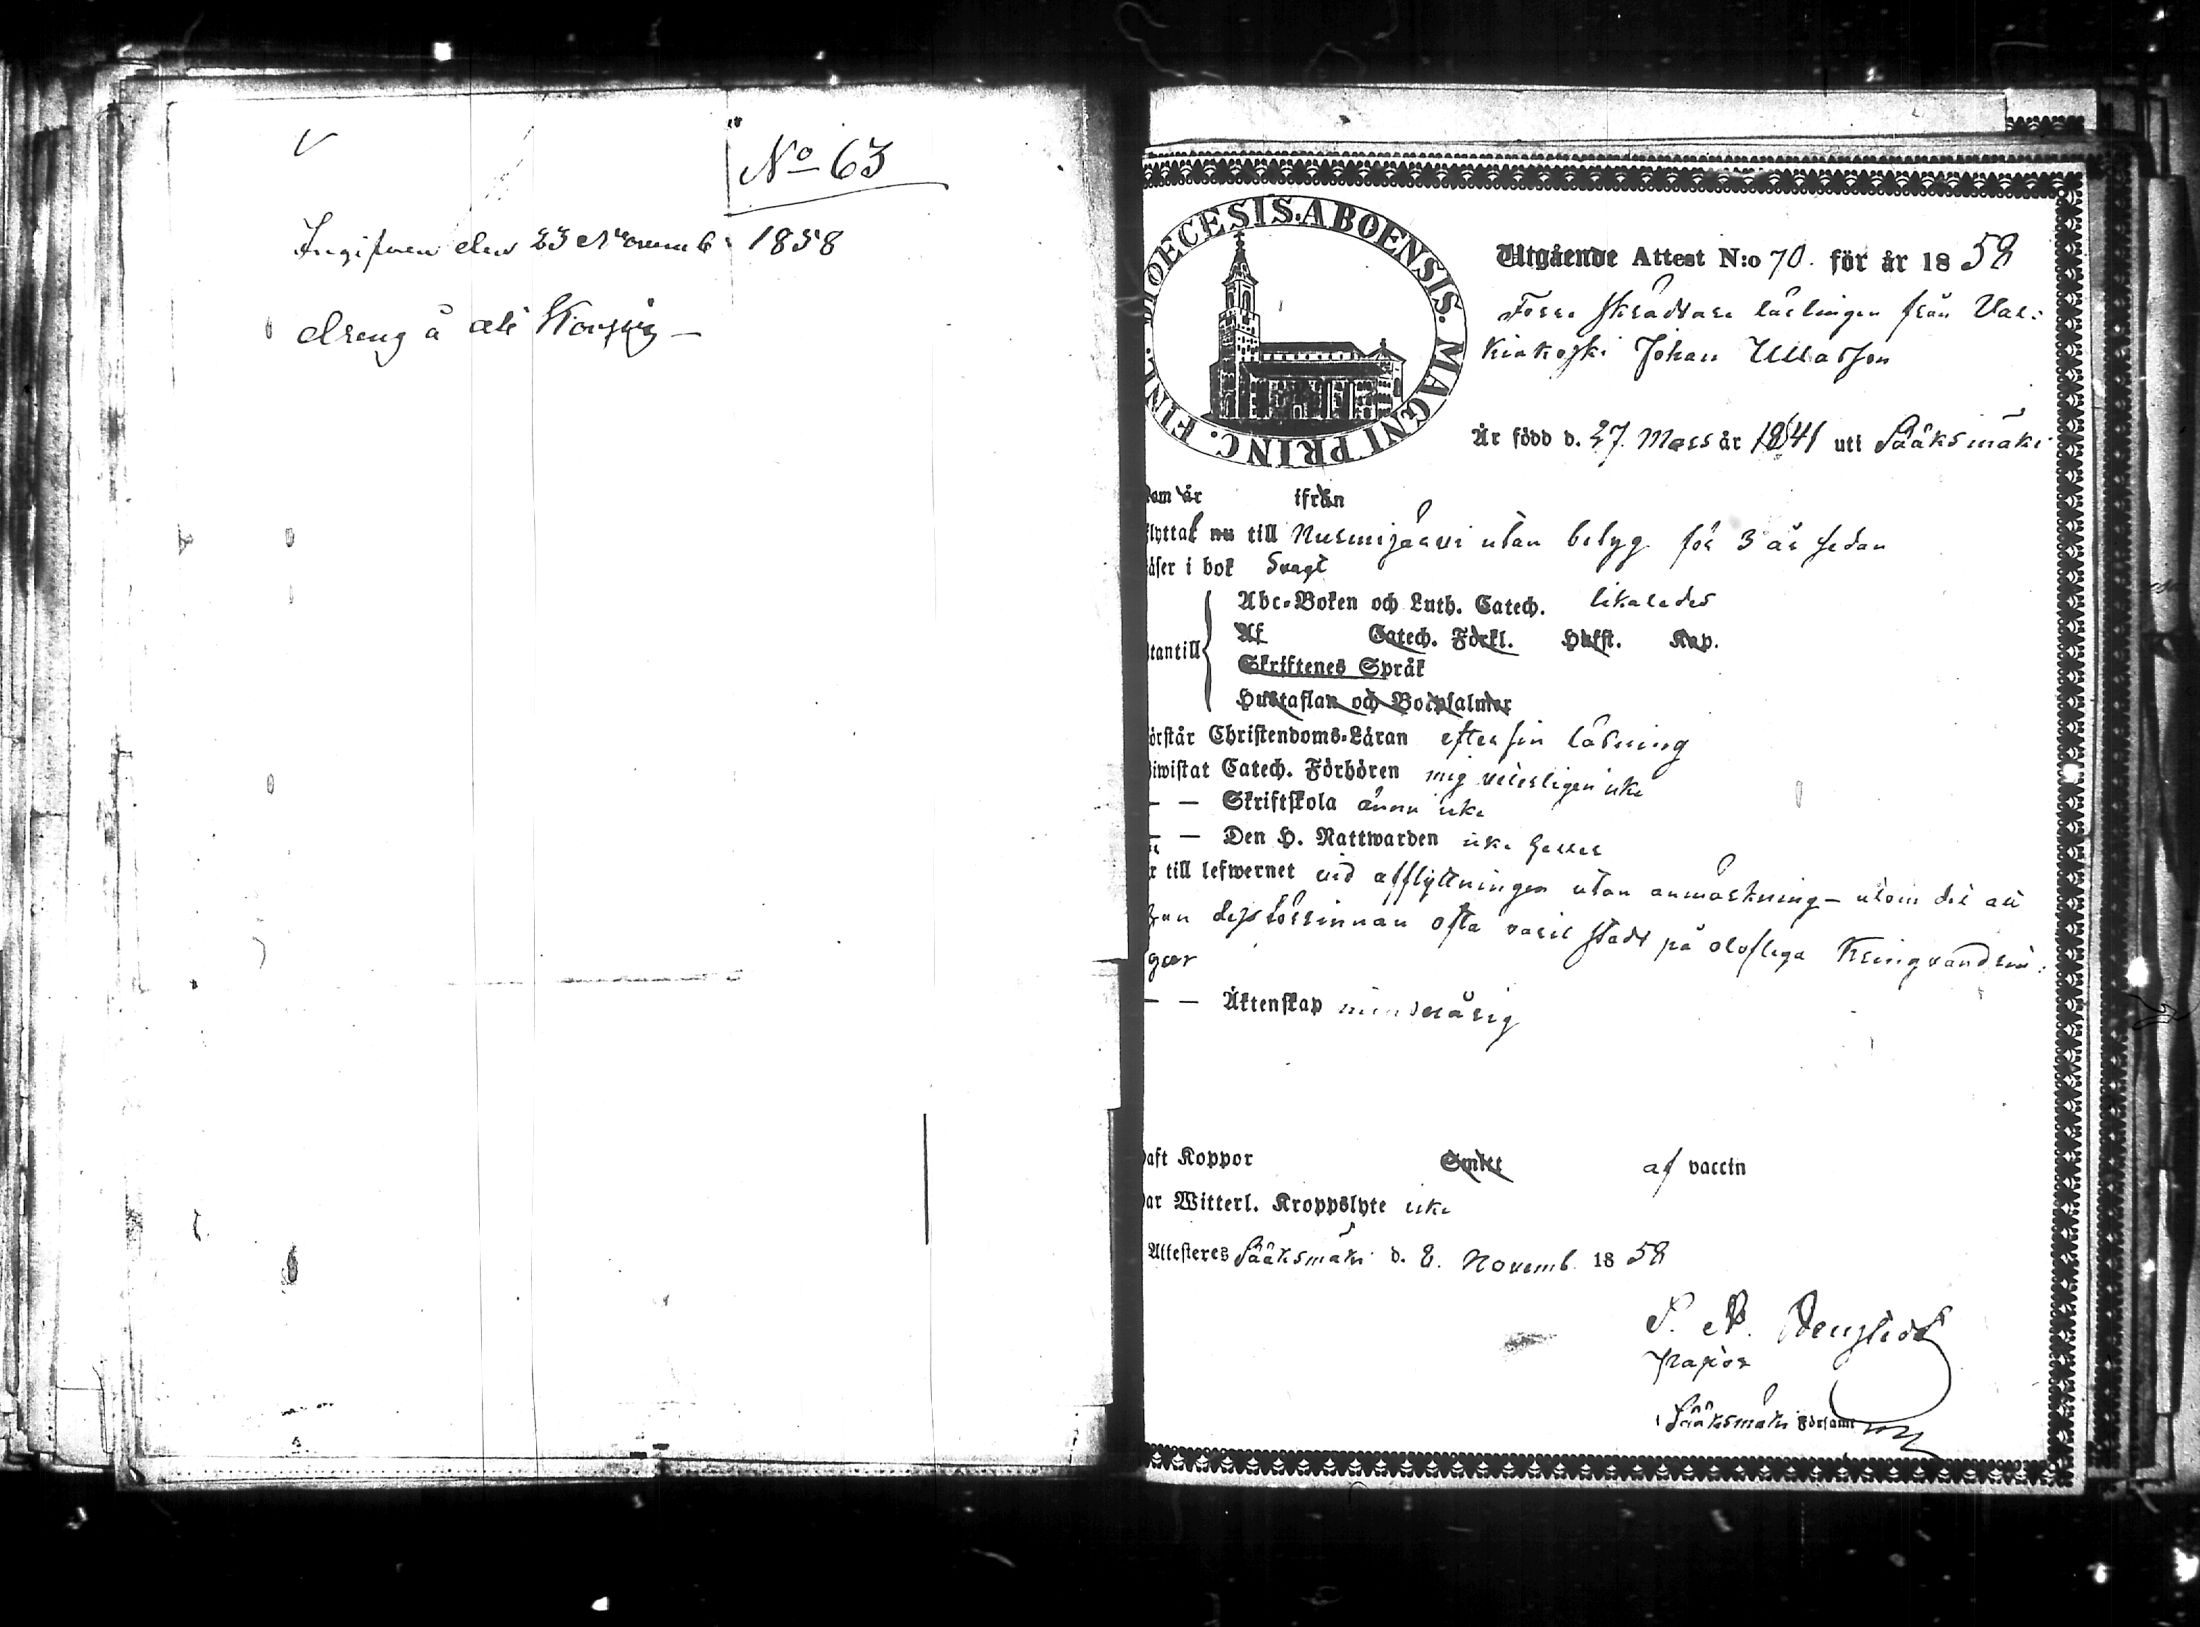 No 63
Ingifven den 23 Novemb 1858
dreng å
DIOECESIS. ABOENSIS. MAGNI PRINC. FINL.
Utgående Attest N:o 70. för år 1858
Förre Skräddare lärlingen från Val:
kiakoski Johan
Är född d. 27. Mars år 1841 uti Sääksmäki
är ifrån
till Nurmijärvi utan betyg för 3 år sedan
i bok Svagt
Abc-Boken och Luth. Catech. likaledes
Af Catech. Förkl. Hufst. Kap.
Skriftenes Språk
Hustaflan och Botpsalmer
Christendoms-Läran efter sin läsning
Catech. Förhören mig veterligen icke
— — Skriftskola ännu icke
— — Den H. Nattwarden icke heller
till lefwernet vid afflyttningen utan anmärkning – utom det att
han dessförinnan ofta varit stadd på olofliga Kringvandrin:
gar
— — Äktenskap minderårig
Koppor Smitt af vaccin
Witterl. Kroppslyte icke
Attesteres Sääksmäki d. 8. Novemb. 1858
i Sääksmäki Förſaml